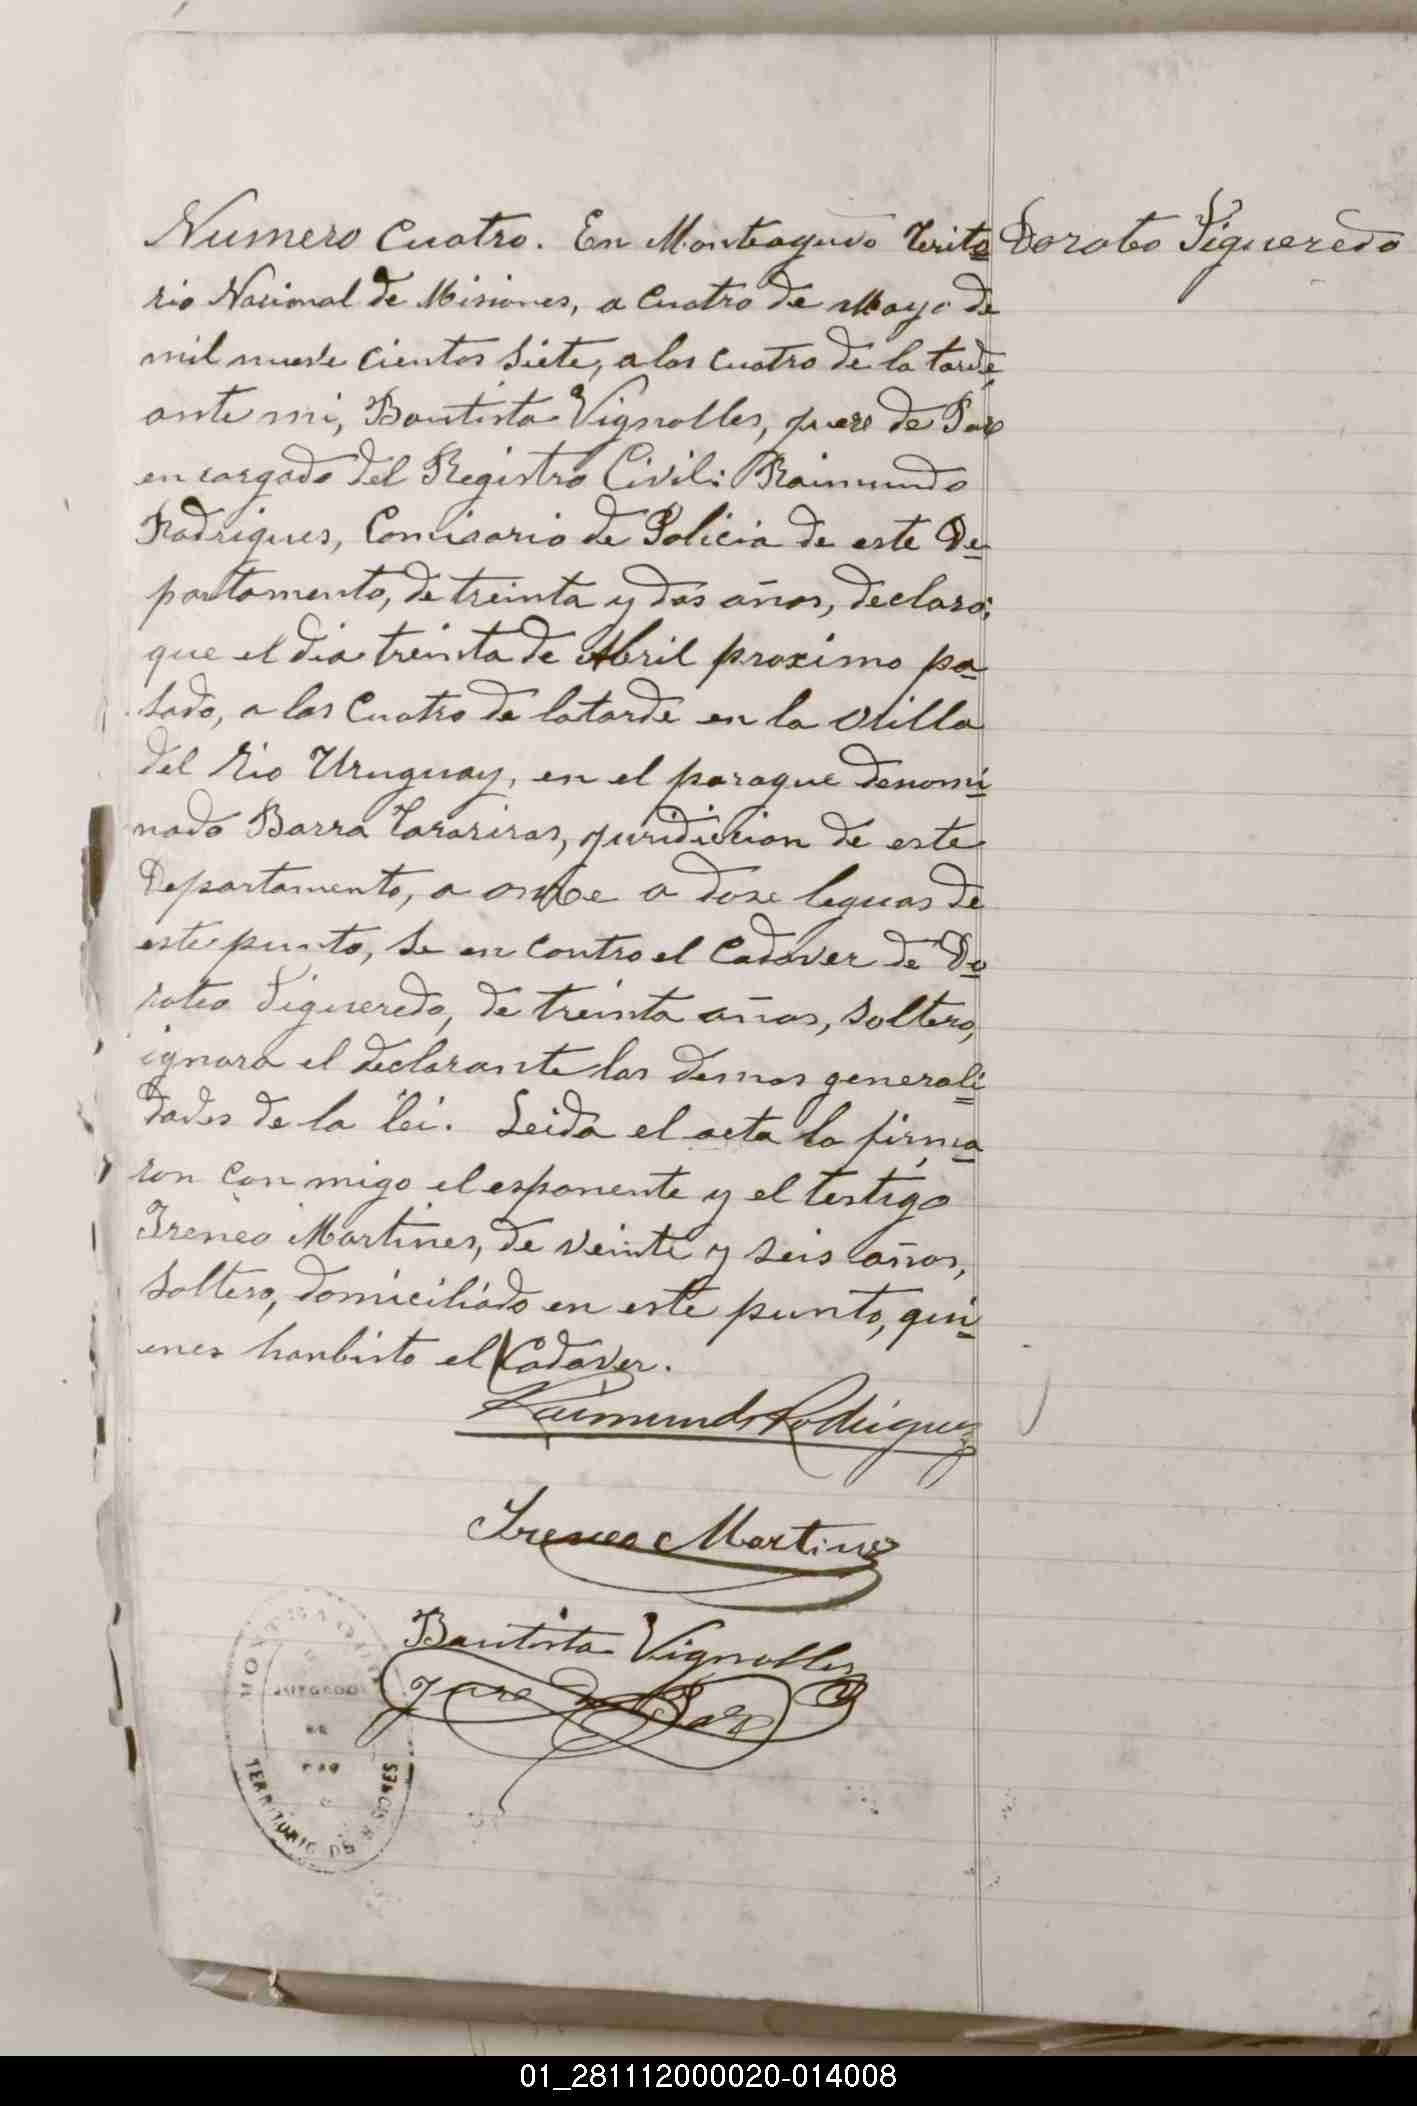 Numero Cuatro. En Monteagudo Terito
Doroteo Figueredo
rio Nacional de Misiones, a cuatro de Mayo de
mil nueve cientos siete, a las cuatro de la tarde,
ante mi, Bautista Vignolles, juez de Paz
encargado del Registro Civil: Raimundo
Rodrigues, Comisario de Policia de este De
partamento, de treinta y dos años, declaró;
que el dia treinta de Abril proximo pa
sado, a las cuatro de la tarde en la Orilla
del Rio Uruguay, en el paraque denomi
nado Barra Tarariras, juridicion de este
Departamento, a onze a doze leguas de
este punto, se en contro el Cadaver de Do
roteo Figueredo, de treinta años, soltero,
ignora el declarante las demas generali
dades de la lei. Leida el acta la firma
ron con migo el esponente y el testigo
Ireneo Martines, de veinte y seis años,
soltero, domiciliado en este punto, qui
enes hanbisto el Cadaver.
Raimundo Rodriguez
Ireneo Martinez
Bautista Vignolles
Juez de Paz
JUZGADO
DE
PAZ
TERRITORIO DE MISIONES
01_281112000020-014008